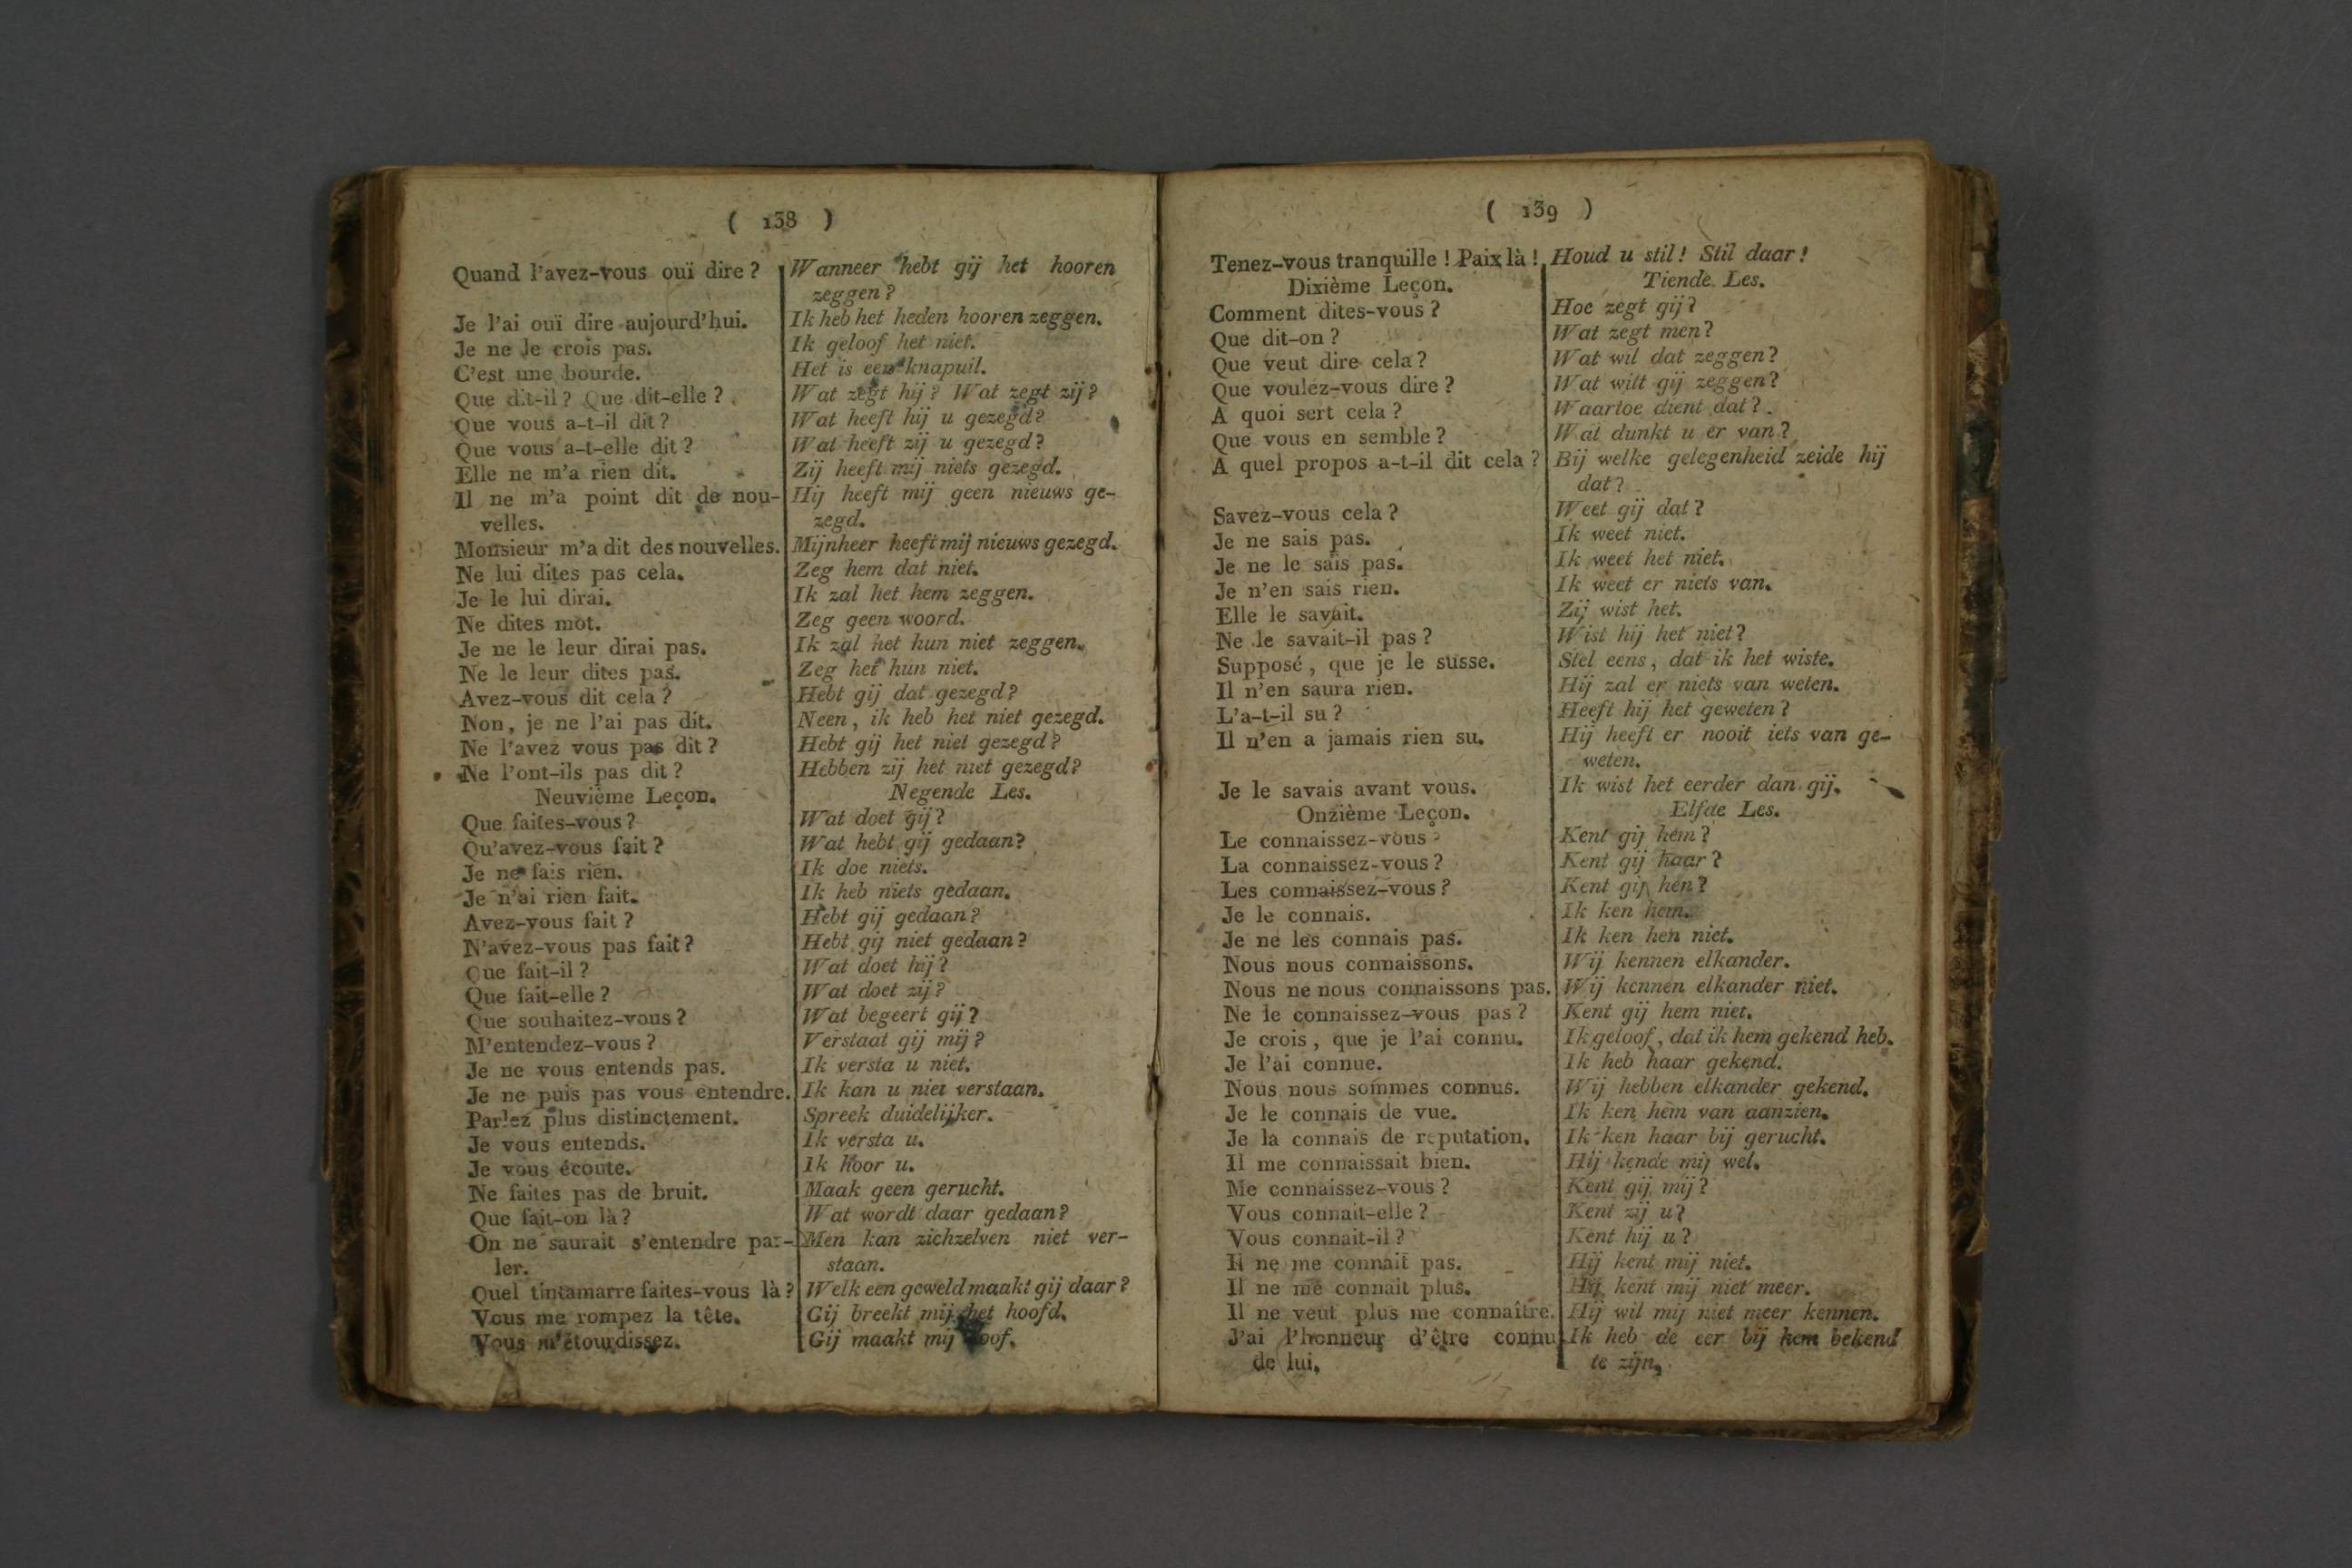 ( 138 )
Quand l'avez-vous ouï dire ?
Je l'ai ouï dire aujourd'hui.
Je ne le crois pas.
C'est une bourde.
Que dit-il ? Que dit-elle ?
Que vous a-t-il dit ?
Que vous a-t-elle dit ?
Elle ne m'a rien dit.
Il ne m'a point dit de nou-
velles.
Monsieur m'a dit des nouvelles.
Ne lui dites pas cela.
Je le lui dirai.
Ne dites mot.
Je ne le leur dirai pas.
Ne le leur dites pas.
Avez-vous dit cela ?
Non, je ne l'ai pas dit.
Ne l'avez vous pas dit ?
Ne l'ont-ils pas dit ?
Neuvième Leçon.
Que faites-vous ?
Qu'avez-vous fait ?
Je ne fais rien.
Je n'ai rien fait.
Avez-vous fait ?
N'avez-vous pas fait ?
Que fait-il ?
Que fait-elle ?
Que souhaitez-vous ?
M'entendez-vous ?
Je ne vous entends pas.
Je ne puis pas vous entendre.
Parlez plus distinctement.
Je vous entends.
Je vous écoute.
Ne faites pas de bruit.
Que fait-on là ?
On ne saurait s'entendre par-
ler.
Quel tintamarre faites-vous là ?
Vous me rompez la tête.
Vous m'étourdissez.
Wanneer hebt gij het hooren
zeggen ?
Ik heb het heden hooren zeggen.
Ik geloof het niet.
Het is een knapuil.
Wat zegt hij ? Wat zegt zij ?
Wat heeft hij u gezegd ?
Wat heeft zij u gezegd ?
Zij heeft mij niets gezegd.
Hij heeft mij geen nieuws ge-
zegd.
Mijnheer heeft mij nieuws gezegd.
Zeg hem dat niet.
Ik zal het hem zeggen.
Zeg geen woord.
Ik zal het hun niet zeggen.
Zeg het hun niet.
Hebt gij dat gezegd ?
Neen, ik heb het niet gezegd.
Hebt gij het niet gezegd ?
Hebben zij het niet gezegd ?
Negende Les.
Wat doet gij ?
Wat hebt gij gedaan ?
Ik doe niets.
Ik heb niets gedaan.
Hebt gij gedaan ?
Hebt gij niet gedaan ?
Wat doet hij ?
Wat doet zij ?
Wat begeert gij ?
Verstaat gij mij ?
Ik versta u niet.
Ik kan u niet verstaan.
Spreek duidelijker.
Ik versta u.
Ik hoor u.
Maak geen gerucht.
Wat wordt daar gedaan ?
Men kan zichzelven niet ver-
staan.
Welk een geweld maakt gij daar ?
Gij breekt mij het hoofd.
Gij maakt mij doof.
( 139 )
Tenez-vous tranquille ! Paix là !
Dixième Leçon.
Comment dites-vous ?
Que dit-on ?
Que veut dire cela ?
Que voulez-vous dire ?
A quoi sert cela ?
Que vous en semble ?
A quel propos a-t-il dit cela ?
Savez-vous cela ?
Je ne sais pas.
Je ne le sais pas.
Je n'en sais rien.
Elle le savait.
Ne le savait-il pas ?
Supposé, que je le susse.
Il n'en saura rien.
L'a-t-il su ?
Il n'en a jamais rien su.
Je le savais avant vous.
Onzième Leçon.
Le connaissez-vous ?
La connaissez-vous ?
Les connaissez-vous ?
Je le connais.
Je ne les connais pas.
Nous nous connaissons.
Nous ne nous connaissons pas.
Ne le connaissez-vous pas ?
Je crois, que je l'ai connu.
Je l'ai connue.
Nous nous sommes connus.
Je le connais de vue.
Je la connais de reputation.
Il me connaissait bien.
Me connaissez-vous ?
Vous connait-elle ?
Vous connait-il ?
Il ne me connait pas.
Il ne me connait plus.
Il ne veut plus me connaître.
J'ai l'honneur d'être connu
de lui.
Houd u stil ! Stil daar !
Tiende Les.
Hoe zegt gij ?
Wat zegt men ?
Wat wil dat zeggen ?
Wat wilt gij zeggen ?
Waartoe dient dat ?
Wat dunkt u er van ?
Bij welke gelegenheid zeide hij
dat ?
Weet gij dat ?
Ik weet niet.
Ik weet het niet.
Ik weet er niets van.
Zij wist het.
Wist hij het niet ?
Stel eens, dat ik het wiste.
Hij zal er niets van weten.
Heeft hij het geweten ?
Hij heeft er nooit iets van ge-
weten.
Ik wist het eerder dan gij.
Elfde Les.
Kent gij hem ?
Kent gij haar ?
Kent gij hen ?
Ik ken hem.
Ik ken hen niet.
Wij kennen elkander.
Wij kennen elkander niet.
Kent gij hem niet.
Ik geloof, dat ik hem gekend heb.
Ik heb haar gekend.
Wij hebben elkander gekend.
Ik ken hem van aanzien.
Ik ken haar bij gerucht.
Hij kende mij wel.
Kent gij mij ?
Kent zij u ?
Kent hij u ?
Hij kent mij niet.
Hij kent mij niet meer.
Hij wil mij niet meer kennen.
Ik heb de eer bij hem bekend
te zijn.